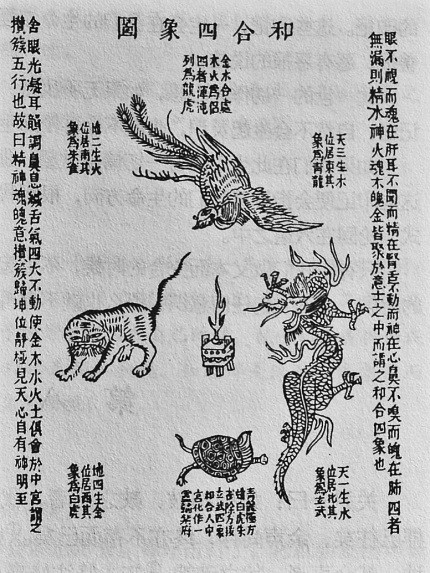 和合四象圖
眼不視而魂在肝耳不聞而精在腎舌不動而神在心鼻不嗅而魄在肺四者
無漏則精水神火魂木魄金皆聚於意土之中而謂之和合四象也
天三生木
位居東其
象為青龍
金木合處
水火為侶
四者渾沌
列為龍虎
地二生火
位居南其
象為朱雀
天一生水
位居北其
象為玄武
青龍
白虎朱
雀
玄武四象
和合入中
宮化作一
靈歸紫府
地四生金
位居西其
象為白虎
含眼光凝耳韻調鼻息緘舌氣四大不動使金木水火土俱會於中宮謂之
攢簇五行也故曰精神魂魄意攢簇歸坤位靜極見天心自有神明至